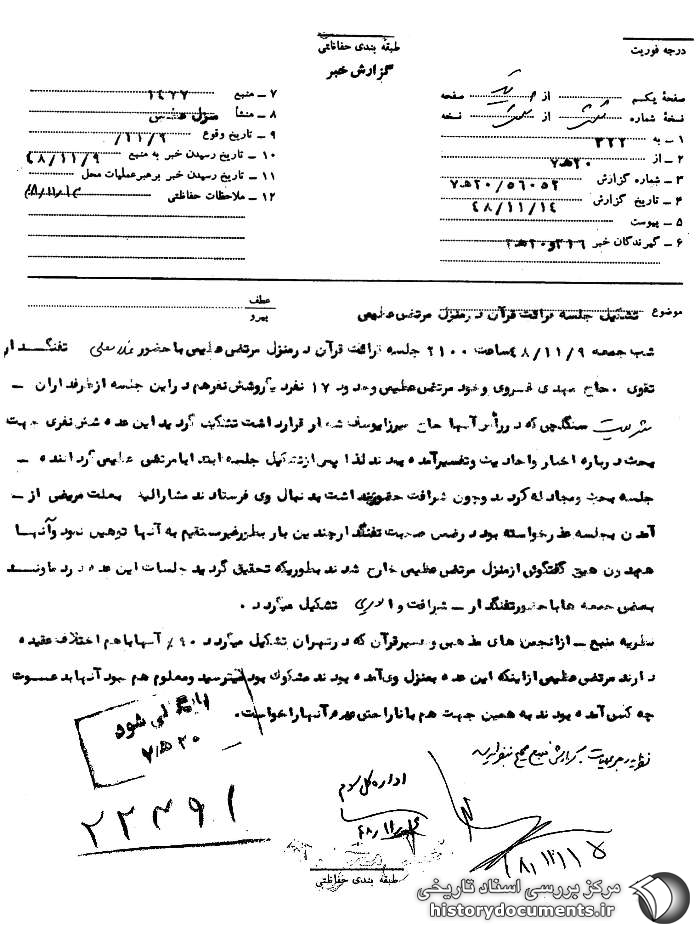 طبقه بندی حفاظتی
درجه فوریت
گزارش خبر
صفحهٔ یکم از صفحه
نسخهٔ شماره از نسخه
۱ ــ به ۳۲۲
۲ ــ از ۲۰هـ۷
۳ ــ شماره گزارش ۲۰/۵۶۰۵۲هـ۷
۴ ــ تاریخ گزارش ۴۸/۱۱/۱۴
۵ ــ پیوست
۶ ــ گیرندگان خبر ۳۱۶و۲۰هـ۲
۷ ــ منبع ۱۴۷۷
۸ ــ منشأ منزل
۹ ــ تاریخ وقوع /۱۱/۹
۱۰ ــ تاریخ رسیدن خبر به منبع ۴۸/۱۱/۹
۱۱ ــ تاریخ رسیدن خبر برهبرعملیات محل
۱۲ ــ ملاحظات حفاظتی
موضوع تشکیل جلسه قرائت قرآن در منزل مرتضی عظیمی
عطف
پیرو
شب جمعه ۴۸/۱۱/۹ ساعت ۲۱۰۰ جلسه قرائت قرآن در منزل مرتضی عظیمی با حضور تفنگدار
تقوی . حاج مهدی خسروی و خود مرتضی عظیمی و حدود ۱۷ نفر دیگر و شش نفر هم در این جلسه از طرفداران ــ
شریعت سنگلجی که در رأس آنها حاج میرزا یوسف شعار قرار داشت تشکیل گردید این عده شش نفری جهت
بحث درباره اخبار و احادیث و تفسیر آمده بودند لذا پس از تشکیل جلسه ابتدا با مرتضی عظیمی گرداننده ــ
جلسه بحث و مجادله کردند و چون شرافت حضور نداشت بدنبال وی فرستادند مشارالیه بعلت مریضی از ــ
آمدن بجلسه عذر خواسته بود در ضمن صحبت تفنگدار چندین بار بطور غیر مستقیم به آنها توهین نمود و آنها
هم بدون هیچ گفتگوئی از منزل مرتضی عظیمی خارج شدند بطوریکه تحقیق گردید جلسات این عده در دماوند
بعضی جمعه ها با حضور تفنگدار ــ شرافت و انوری تشکیل میگردد .
نظریه منبع ــ از انجمن های مذهبی و تفسیر قرآن که در تهران تشکیل میگردد ۹۰٪ آنها با هم اختلاف عقیده
دارند مرتضی عظیمی از اینکه این عده بمنزل وی آمده بودند مشکوک بود و میترسید و معلوم هم نبود آنها بدعوت
چه کسی آمده بودند به همین جهت هم با ناراحتی عذر آنها را خواست .
نظریه رهبر عملیات . گزارش منبع صحیح بنظر میرسد
بایگانی شود
۲۰هـ۷
اداره کل سوم
۲۲۴۹۱
طبقه بندی حفاظتی
مرکز بررسی اسناد تاریخی
historydocuments.ir